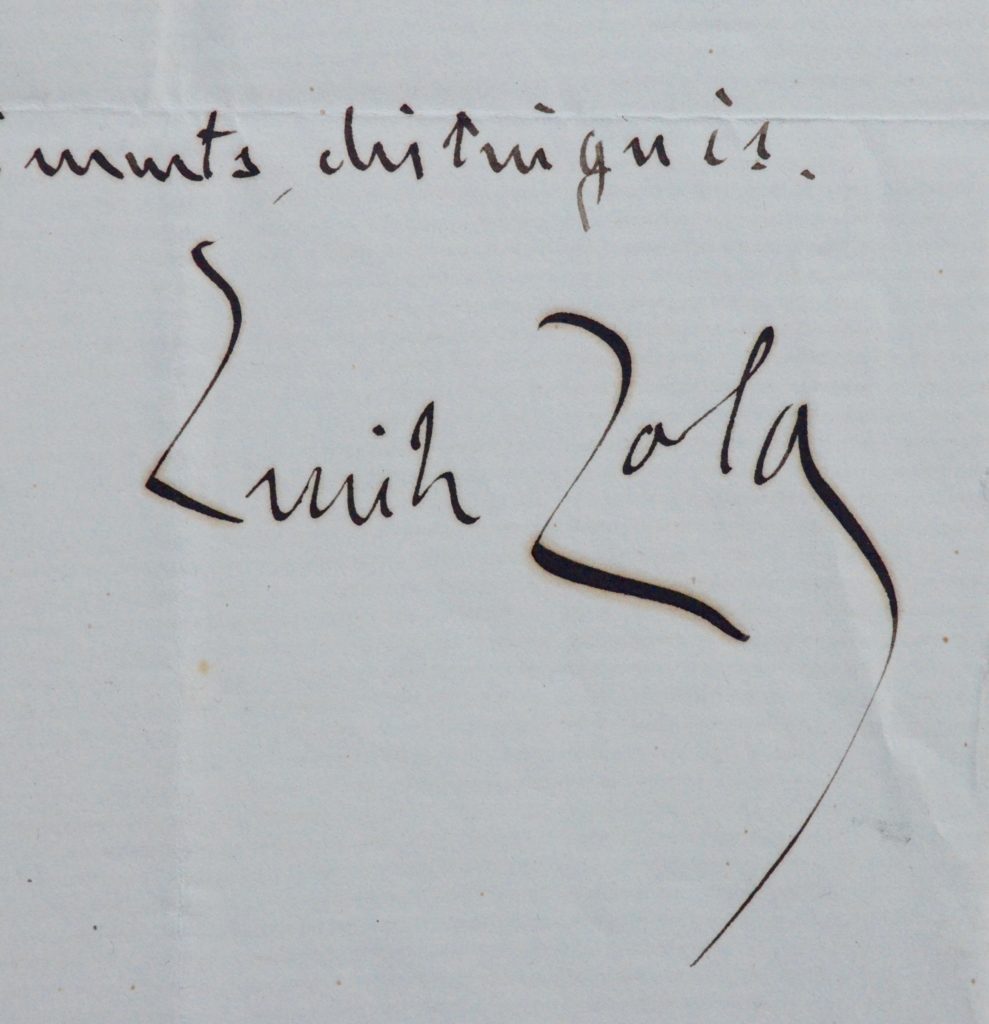 iments distingués.
Emile Zola